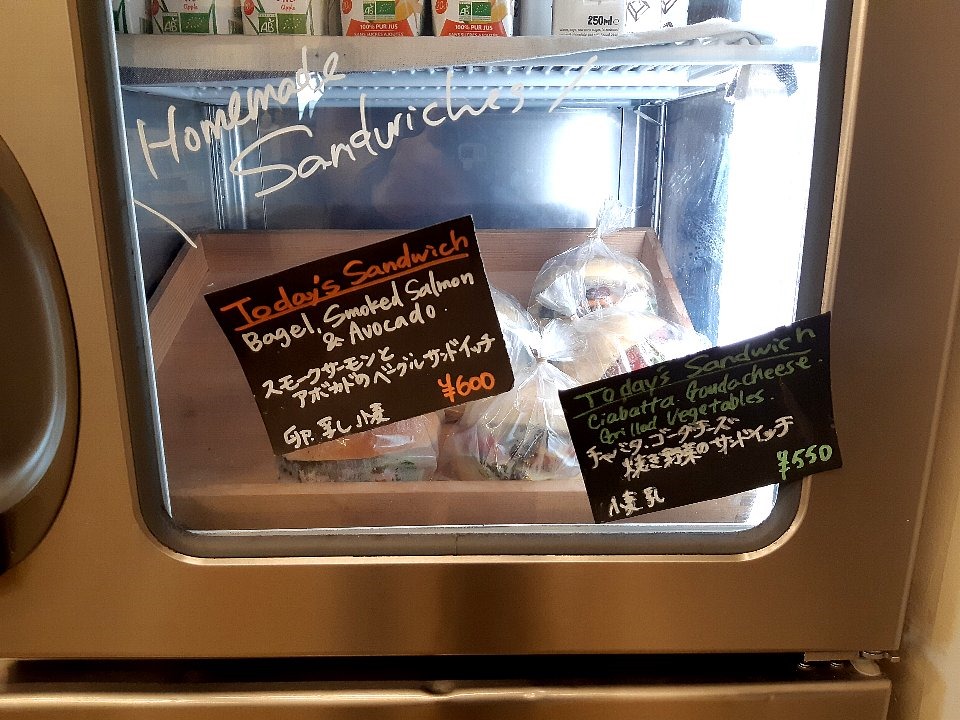 Apple
AB
Apple
AB
100% PUR JUS
SANS SUCRES AJOUTÉS
AB
100% PUR JUS
SANS SUCRES AJOUTÉS
AB
250ml
Homemade
Sandwiches
Today's Sandwich
Bagel, Smoked Salmon
& Avocado.
スモークサーモンと
アボカドのベーグルサンドイッチ
¥600
卵. 乳し 小麦
Today's Sandwich
Ciabatta. Goudacheese.
Grilled vegetables.
チャバタ、ゴーダチーズ
焼き野菜のサンドイッチ
¥550
小麦 乳